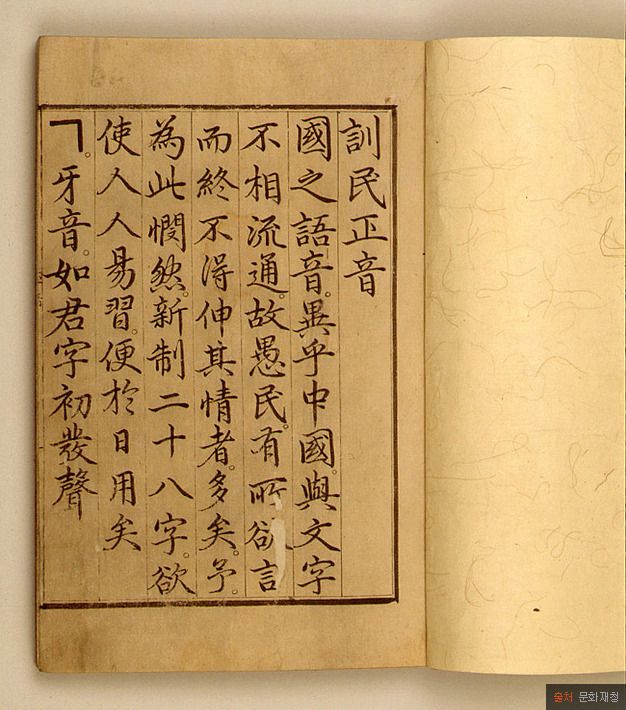 訓民正音
國之語音。異乎中國。與文字
不相流通。故愚民。有所欲言
而終不得伸其情者。多矣。予。
為此憫然。新制二十八字。欲
使人人易習。便於日用矣
ㄱ。牙音。如君字初發聲
출처 문화재청